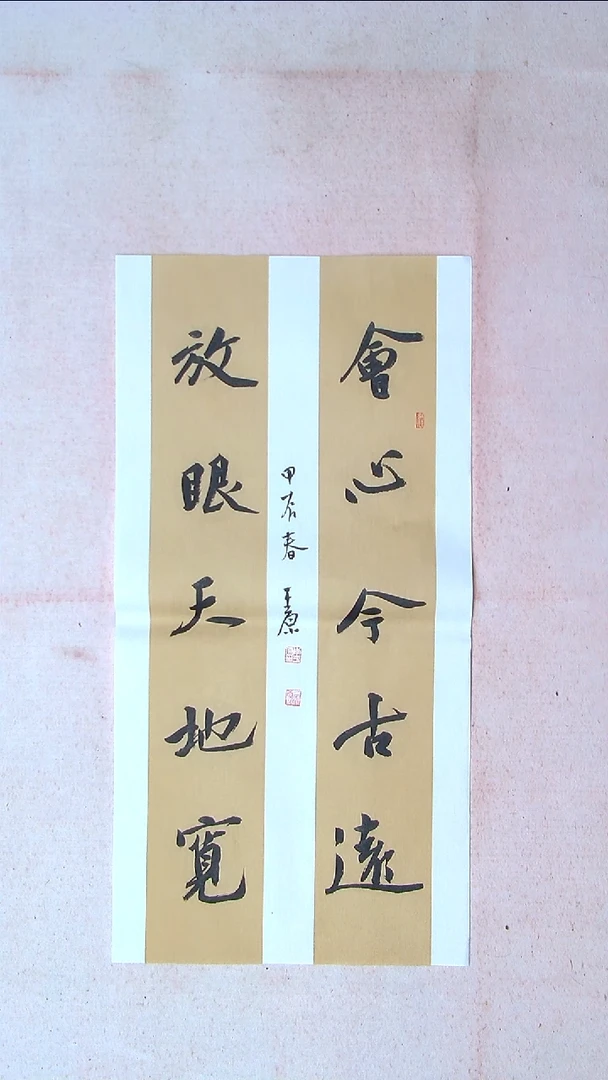 會心今古遠
放眼天地寬
甲辰春 王原